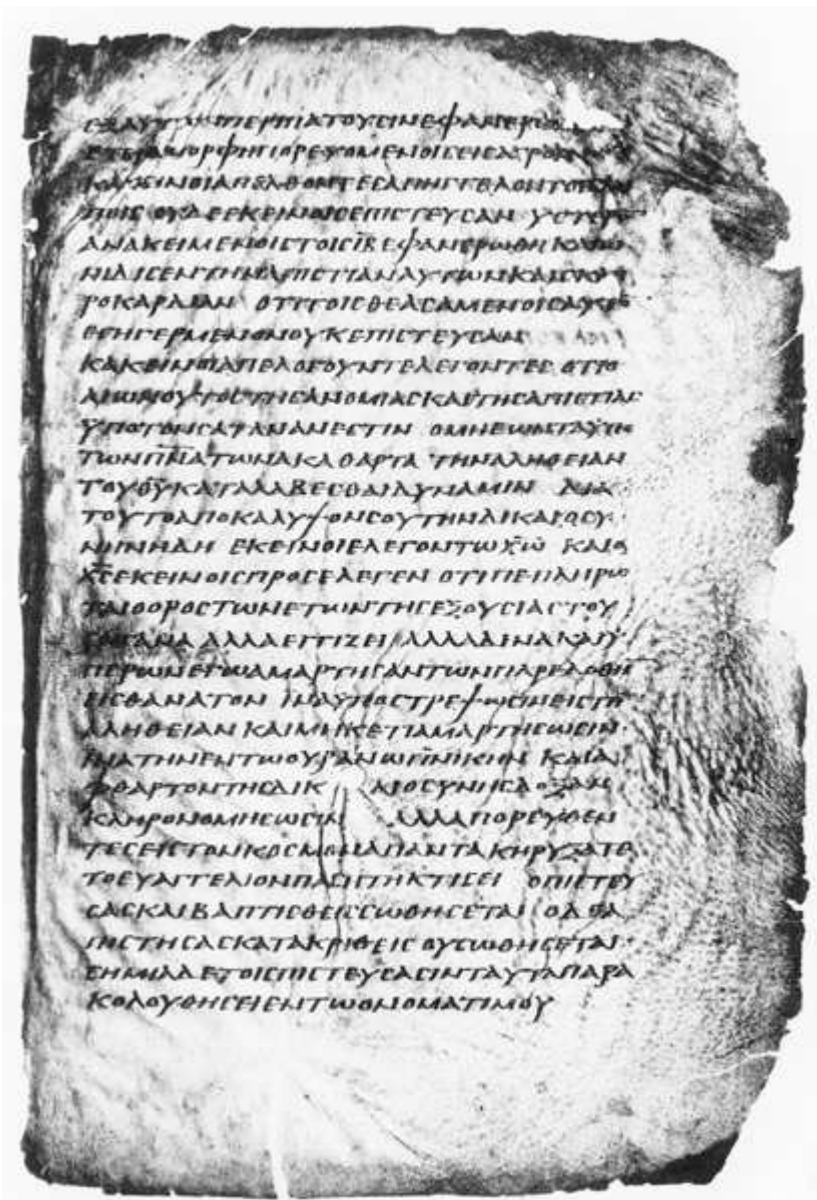 ΕΞΑΥΤΩΝΠΕΡΠΑΤΟΥϹΙΝΕΦΑΝΕΡΩ
ΕΤΕΡΑΜΟΡΦΗΠΟΡΕΥΟΜΕΝΟΙϹΕΙϹΑΓΡΟΝ
ΚΑΚΕΙΝΟΙΑΠΕΛΘΟΝΤΕϹΑΠΗΓΓΕΛΟΝΤΟΙϹΛΟΙ
ΠΟΙϹ ΟΥΔΕΕΚΕΙΝΟΙϹΕΠΙϹΤΕΥϹΑΝ ΥϹΤΕΡΟ
ΑΝΑΚΕΙΜΕΝΟΙϹΤΟΙϹΙ̅Α̅ΕΦΑΝΕΡΩΘΗ ΚΑΙΩ
ΝΙΔΙϹΕΝΤΗΝΑΠΙϹΤΙΑΝΑΥΤΩΝΚΑΙϹΚΛΗ
ΡΟΚΑΡΔΙΑΝ ΟΤΙΤΟΙϹΘΕΑϹΑΜΕΝΟΙϹΑΥΤΟ
ΕΓΗΓΕΡΜΕΝΟΝΟΥΚΕΠΙϹΤΕΥϹΑΝ
ΚΑΚΕΙΝΟΙΑΠΕΛΟΓΟΥΝΤΕΛΕΓΟΝΤΕϹ ΟΤΙΟ
ΑΙΩΝΟΥΤΟϹΤΗϹΑΝΟΜΙΑϹΚΑΙΤΗϹΑΠΙϹΤΙΑϹ
ΥΠΟΤΟΝϹΑΤΑΝΑΝΕϹΤΙΝ ΟΜΗΕΩΝΤΑΥΠΟ
ΤΩΝΠ̅Ν̅Α̅ΤΩΝΑΚΑΘΑΡΤΑ ΤΗΝΑΛΗΘΕΙΑΝ
ΤΟΥΘ̅Υ̅ΚΑΤΑΛΑΒΕϹΘΑΙΔΥΝΑΜΙΝ ΔΙΑ
ΤΟΥΤΟΑΠΟΚΑΛΥΨΟΝϹΟΥΤΗΝΔΙΚΑΙΟϹΥ
ΝΗΝΗΔΗ ΕΚΕΙΝΟΙΕΛΕΓΟΝΤΩΧ̅Ω̅ ΚΑΙΟ
Χ̅Ϲ̅ΕΚΕΙΝΟΙϹΠΡΟϹΕΛΕΓΕΝ ΟΤΙΠΕΠΛΗΡΩ
ΤΑΙΟΟΡΟϹΤΩΝΕΤΩΝΤΗϹΕΞΟΥϹΙΑϹΤΟΥ
ϹΑΤΑΝΑ ΑΛΛΑΕΓΓΙΖΕΙ ΑΛΛΑΔΙΝΑΚΑΙΥ
ΠΕΡΩΝΕΓΩΑΜΑΡΤΗϹΑΝΤΩΝΠΑΡΕΔΟΘΗ
ΕΙϹΘΑΝΑΤΟΝ ΙΝΑΥΠΟϹΤΡΕΨΩϹΙΝΕΙϹΤΗ
ΑΛΗΘΕΙΑΝ ΚΑΙΜΗΚΕΤΙΑΜΑΡΤΗϹΩϹΙΝ
ΙΝΑΤΗΝΕΝΤΩΟΥΡΑΝΩΠ̅Ν̅ΙΚΗΝ ΚΑΙΑ
ΦΘΑΡΤΟΝΤΗϹΔΙΚΑΙΟϹΥΝΗϹΔΟΞΑΝ
ΚΛΗΡΟΝΟΜΗϹΩϹΙΝ ΑΛΛΑΠΟΡΕΥΘΕΝ
ΤΕϹΕΙϹΤΟΝΚΟϹΜΟΝΑΠΑΝΤΑΚΗΡΥΞΑΤΕ
ΤΟΕΥΑΓΓΕΛΙΟΝΠΑϹΗΤΗΚΤΙϹΕΙ ΟΠΙϹΤΕΥ
ϹΑϹΚΑΙΒΑΠΤΙϹΘΕΙϹϹΩΘΗϹΕΤΑΙ ΟΔΕΑ
ΠΙϹΤΗϹΑϹΚΑΤΑΚΡΙΘΕΙϹ ΟΥϹΩΘΗϹΕΤΑΙ
ϹΗΜΙΑΔΕΤΟΙϹΠΙϹΤΕΥϹΑϹΙΝΤΑΥΤΑΠΑΡΑ
ΚΟΛΟΥΘΗϹΕΙΕΝΤΩΟΝΟΜΑΤΙΜΟΥ